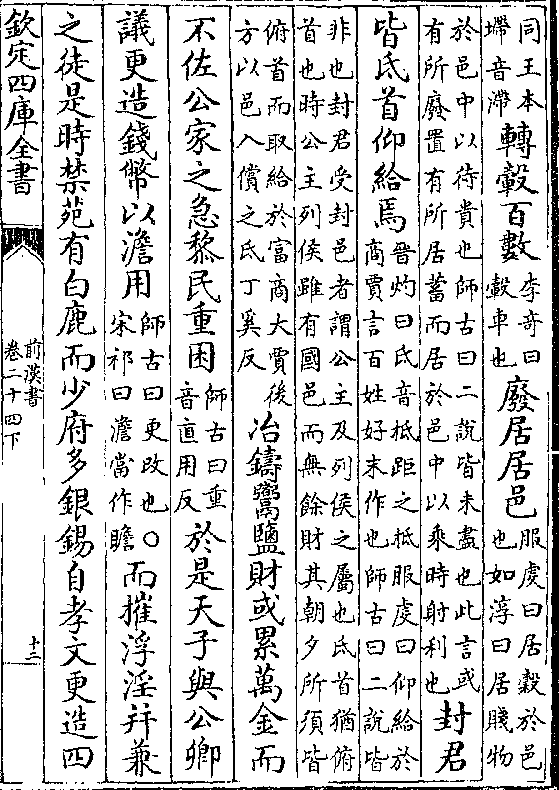 同王本墆音滯轉轂百數李奇曰轂車也廢居居邑服虔曰居穀於邑也如淳曰居賤物
於邑中以待貴也師古曰二說皆未盡也此言或有所廢置有所居蓄而居於邑中以乘時射利也封君
皆氐首仰給焉晉灼曰氐音抵距之抵服虔曰仰給於商賈言百姓好末作也師古曰二說皆
非也封君受封邑者謂公主及列侯之屬也氐首猶俯首也時公主列侯雖有國邑而無餘財其朝夕所須皆
俯首而取給於富商大賈後方以邑入償之氐丁奚反冶鑄鬻鹽財或累萬金而
不佐公家之急黎民重困師古曰重音直用反於是天子與公卿
議更造錢幣以澹用師古曰更改也〇宋祁曰澹當作贍而摧浮淫并兼
之徒是時禁苑有白鹿而少府多銀錫自孝文更造四
欽定四庫全書
前漢書
卷二十四下
十二